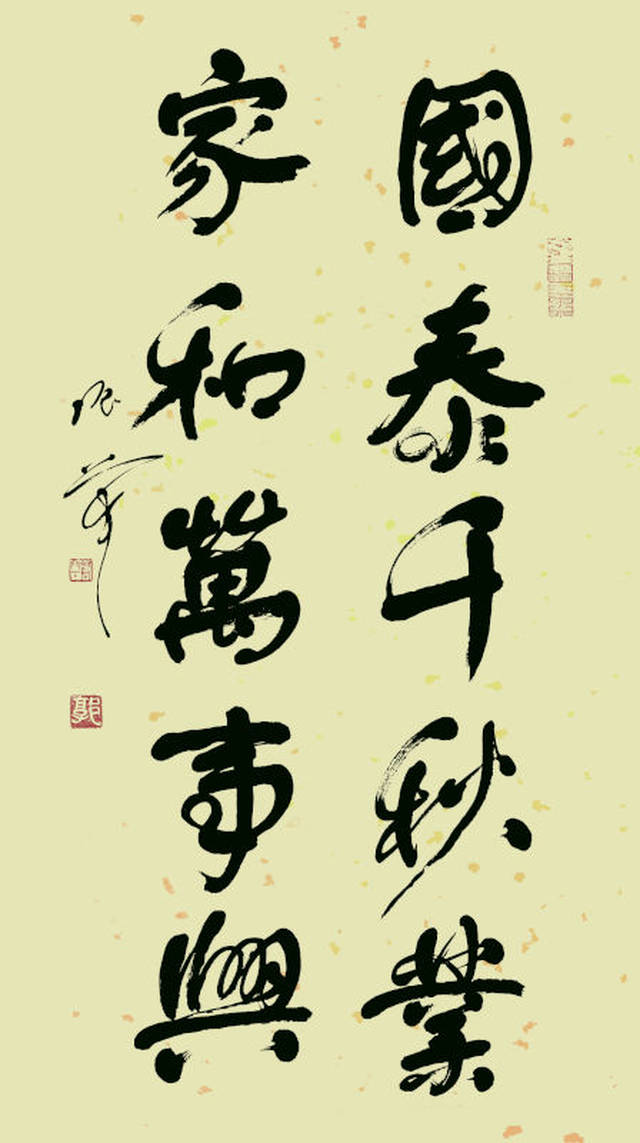 國泰千秋業
家和萬事興
郭